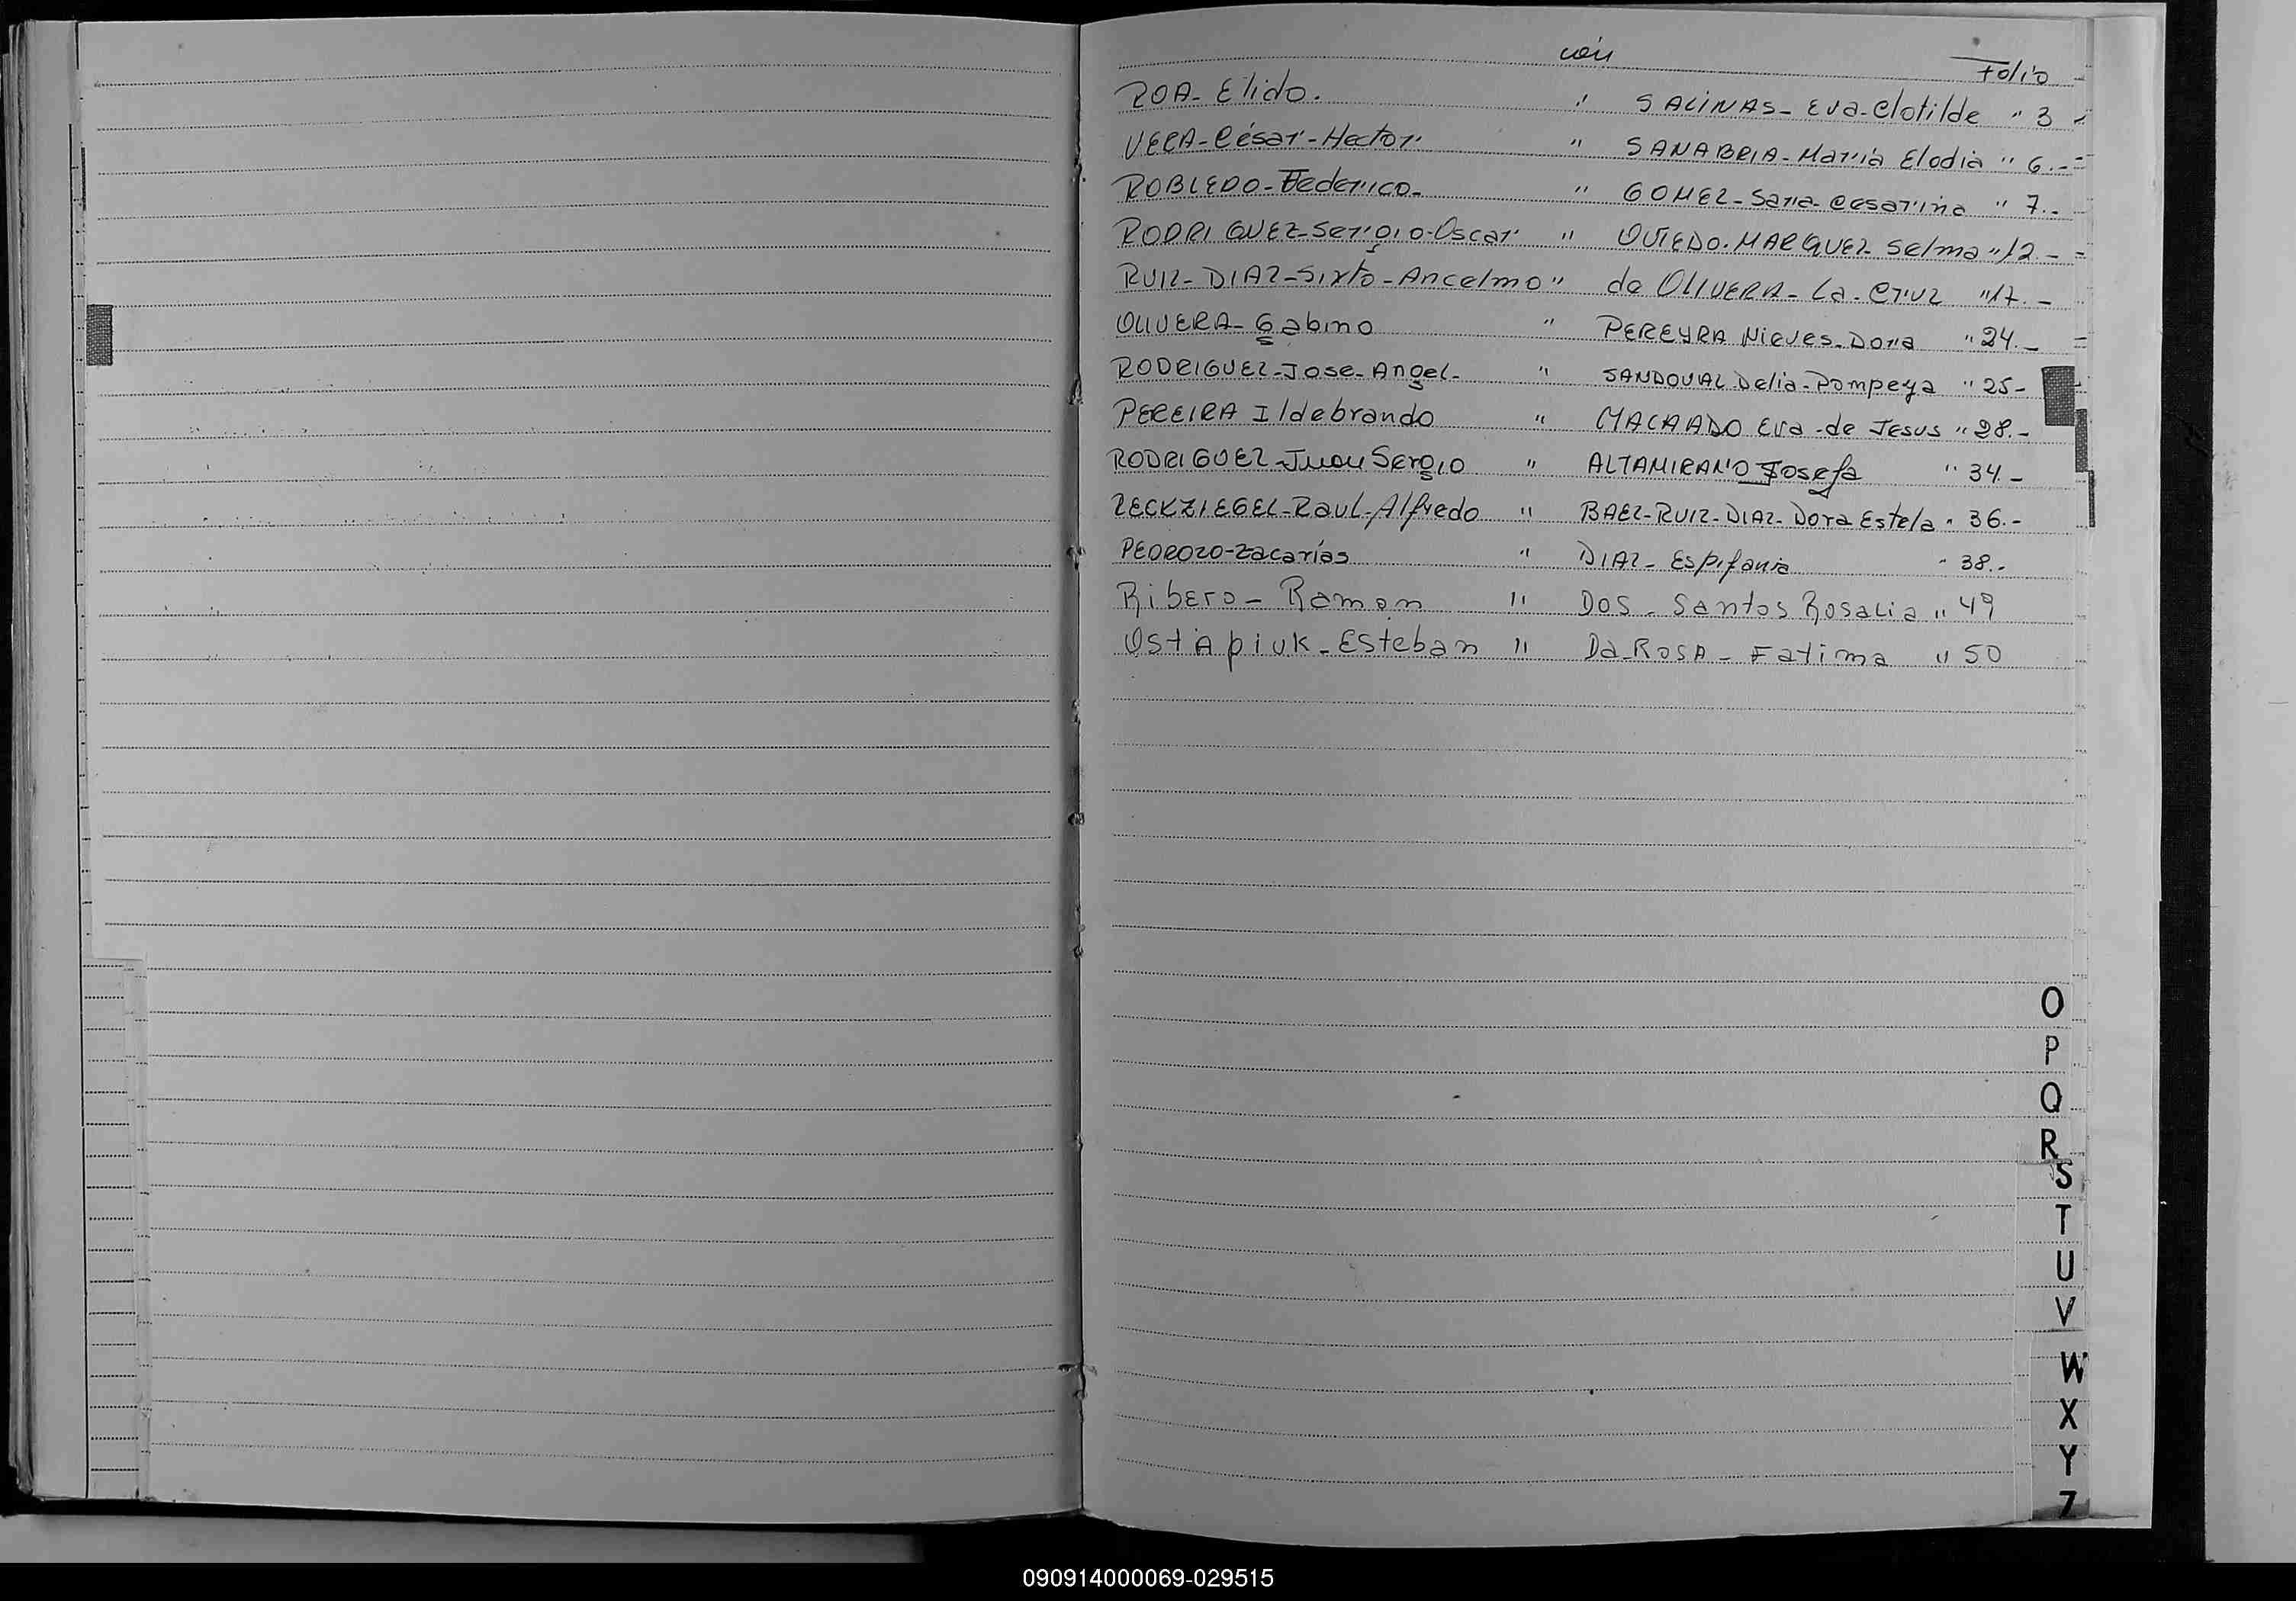 con
Folio
ROA- Elido. " SALINAS- Eva-Clotilde " 3
VERA-César-Hector " SANABRIA-María Elodia " 6.-
ROBLEDO-Federico- " GOMEZ-Sara-Cesarina " 7.-
RODRIGUEZ-Sergio-Oscar " OVIEDO-MARQUEZ Selma " 12.-
RUIZ-DIAZ-Sixto-Ancelmo " de OLIVERA-La-Cruz " 17.-
OLIVERA-Gabino " PEREYRA Nieves-Dora " 24.-
RODRIGUEZ-Jose-Angel- " SANDOVAL Delia-Pompeya " 25-
PEREIRA Ildebrando " MACHADO Eva-de Jesus " 28.-
RODRIGUEZ-Juan Sergio " ALTAMIRANO Josefa " 34.-
RECKZIEGEL-Raul-Alfredo " BAEZ-RUIZ-DIAZ-Dora Estela " 36.-
PEDROZO-Zacarías " DIAZ-Espifania " 38.-
Ribero- Ramon " DOS-Santos Rosalia " 49
Ostapiuk-Esteban " Da-Rosa-Fatima " 50
O
P
Q
R
S
T
U
V
W
X
Y
Z
090914000069-029515